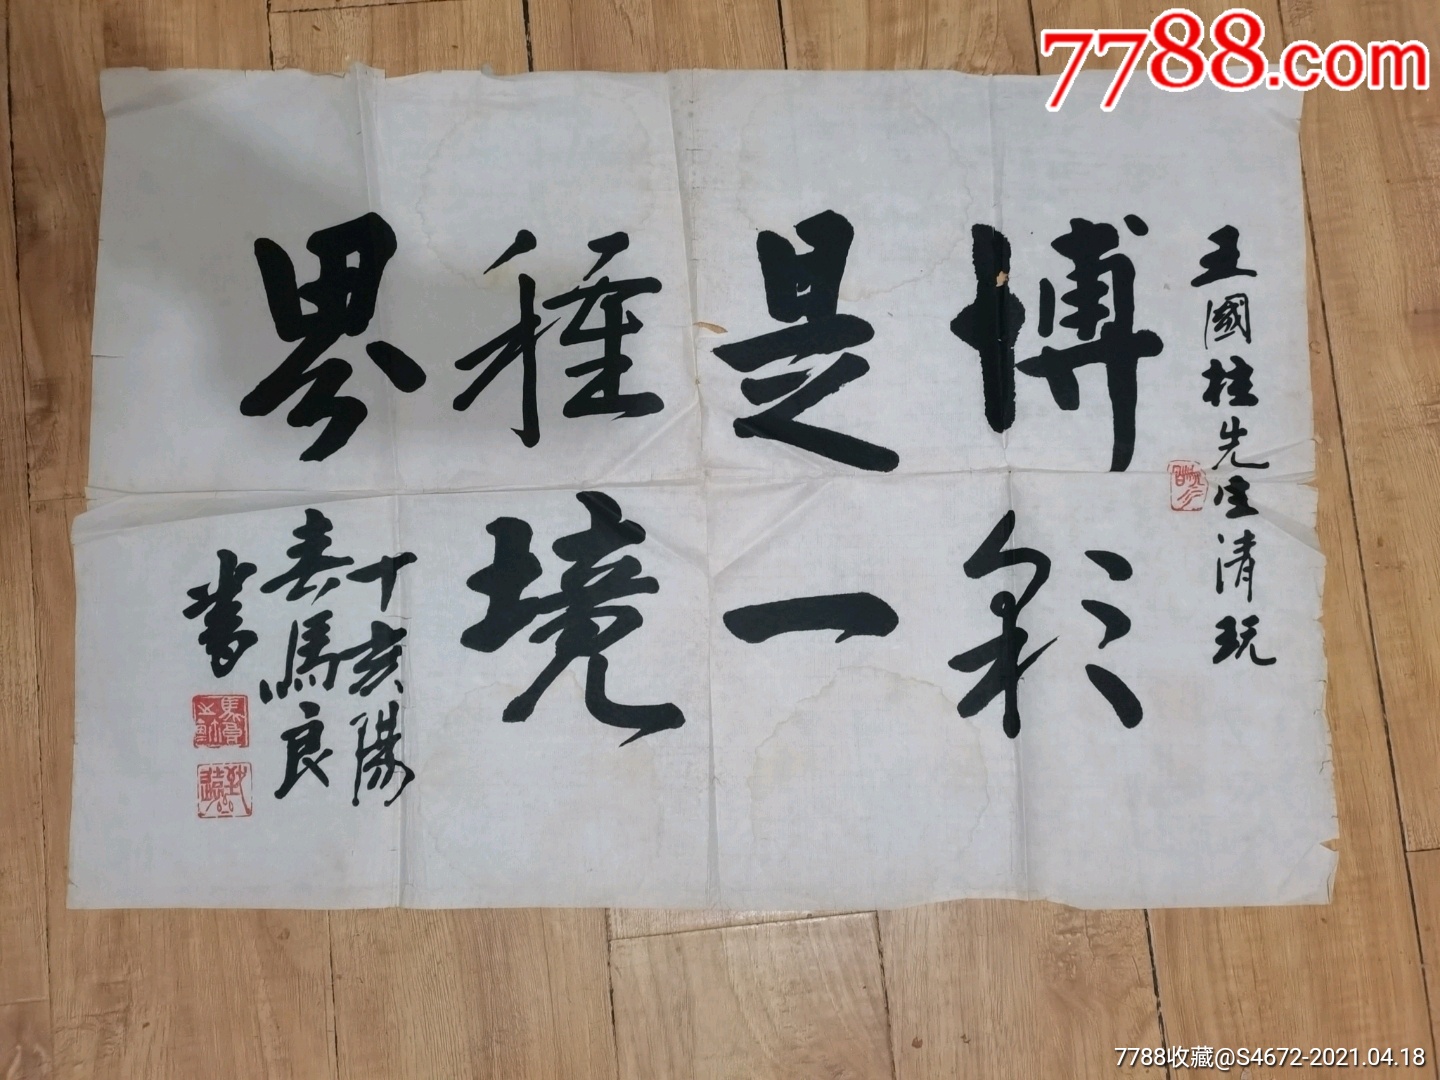 7788.com
王國柱先生清玩
博彩
是一
種境
界
丁亥陽
春馬良
書
7788收藏@S4672-2021.04.18